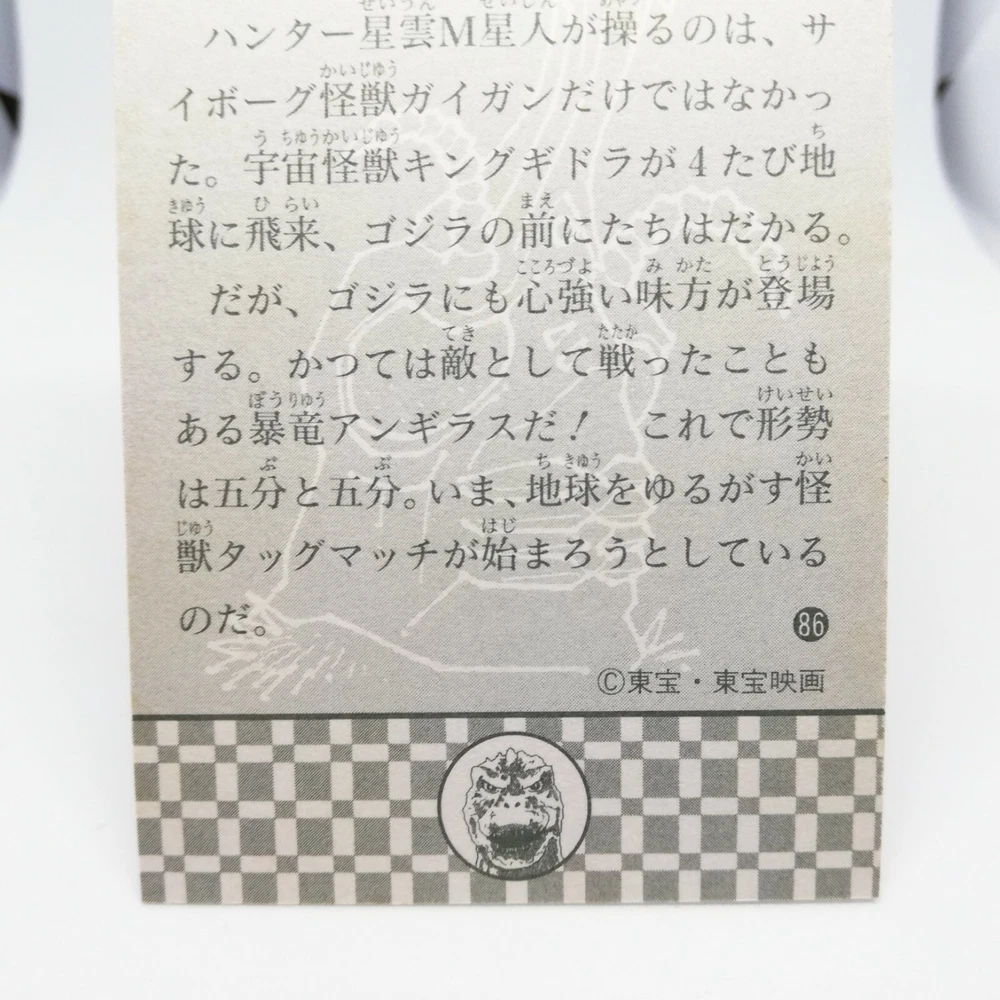 ハンター星雲M星人が操るのは、サ
イボーグ怪獣ガイガンだけではなかっ
た。宇宙怪獣キングギドラが4たび地
球に飛来、ゴジラの前にたちはだかる。
だが、ゴジラにも心強い味方が登場
する。かつては敵として戦ったことも
ある暴竜アンギラスだ！　これで形勢
は五分と五分。いま、地球をゆるがす怪
獣タッグマッチが始まろうとしている
のだ。
86
Ⓒ東宝・東宝映画